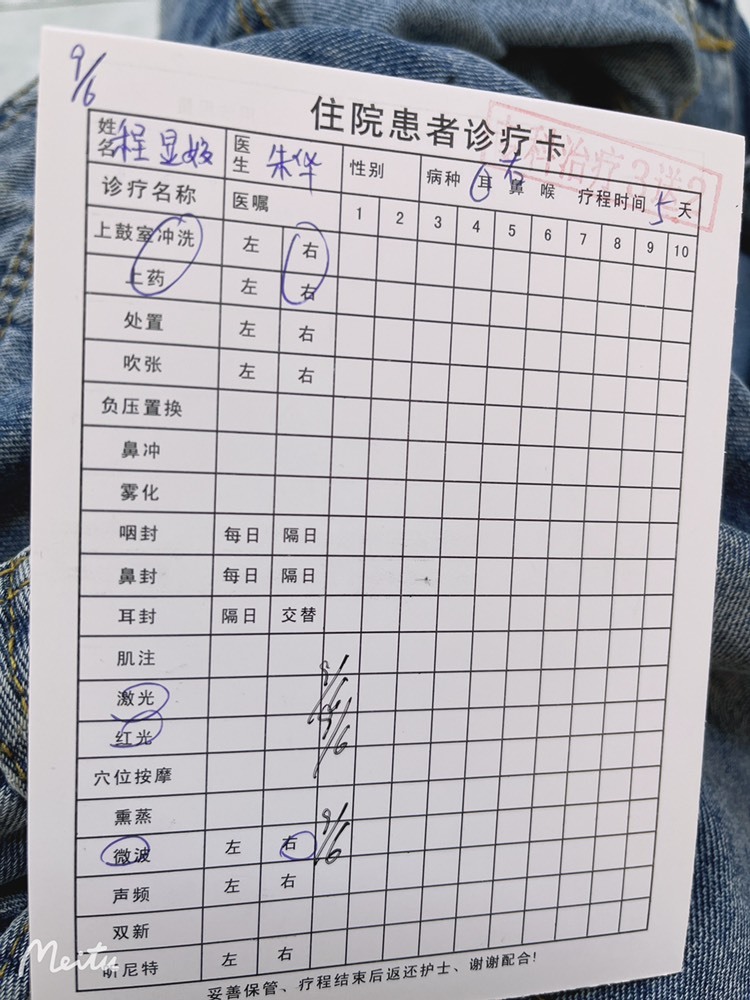 9/6
住院患者诊疗卡
科治疗3送2
姓名 程显姣 医生 朱华 性别 病种 耳 鼻 喉 右 疗程时间 5 天
诊疗名称 医嘱 1 2 3 4 5 6 7 8 9 10
上鼓室冲洗 左 右
上药 左 右
处置 左 右
吹张 左 右
负压置换
鼻冲
雾化
咽封 每日 隔日
鼻封 每日 隔日
耳封 隔日 交替
肌注
激光 9/6
红光 9/6
穴位按摩
熏蒸
微波 左 右 9/6
声频 左 右
双新
昕尼特 左 右
妥善保管、疗程结束后返还护士、谢谢配合!
Meitu